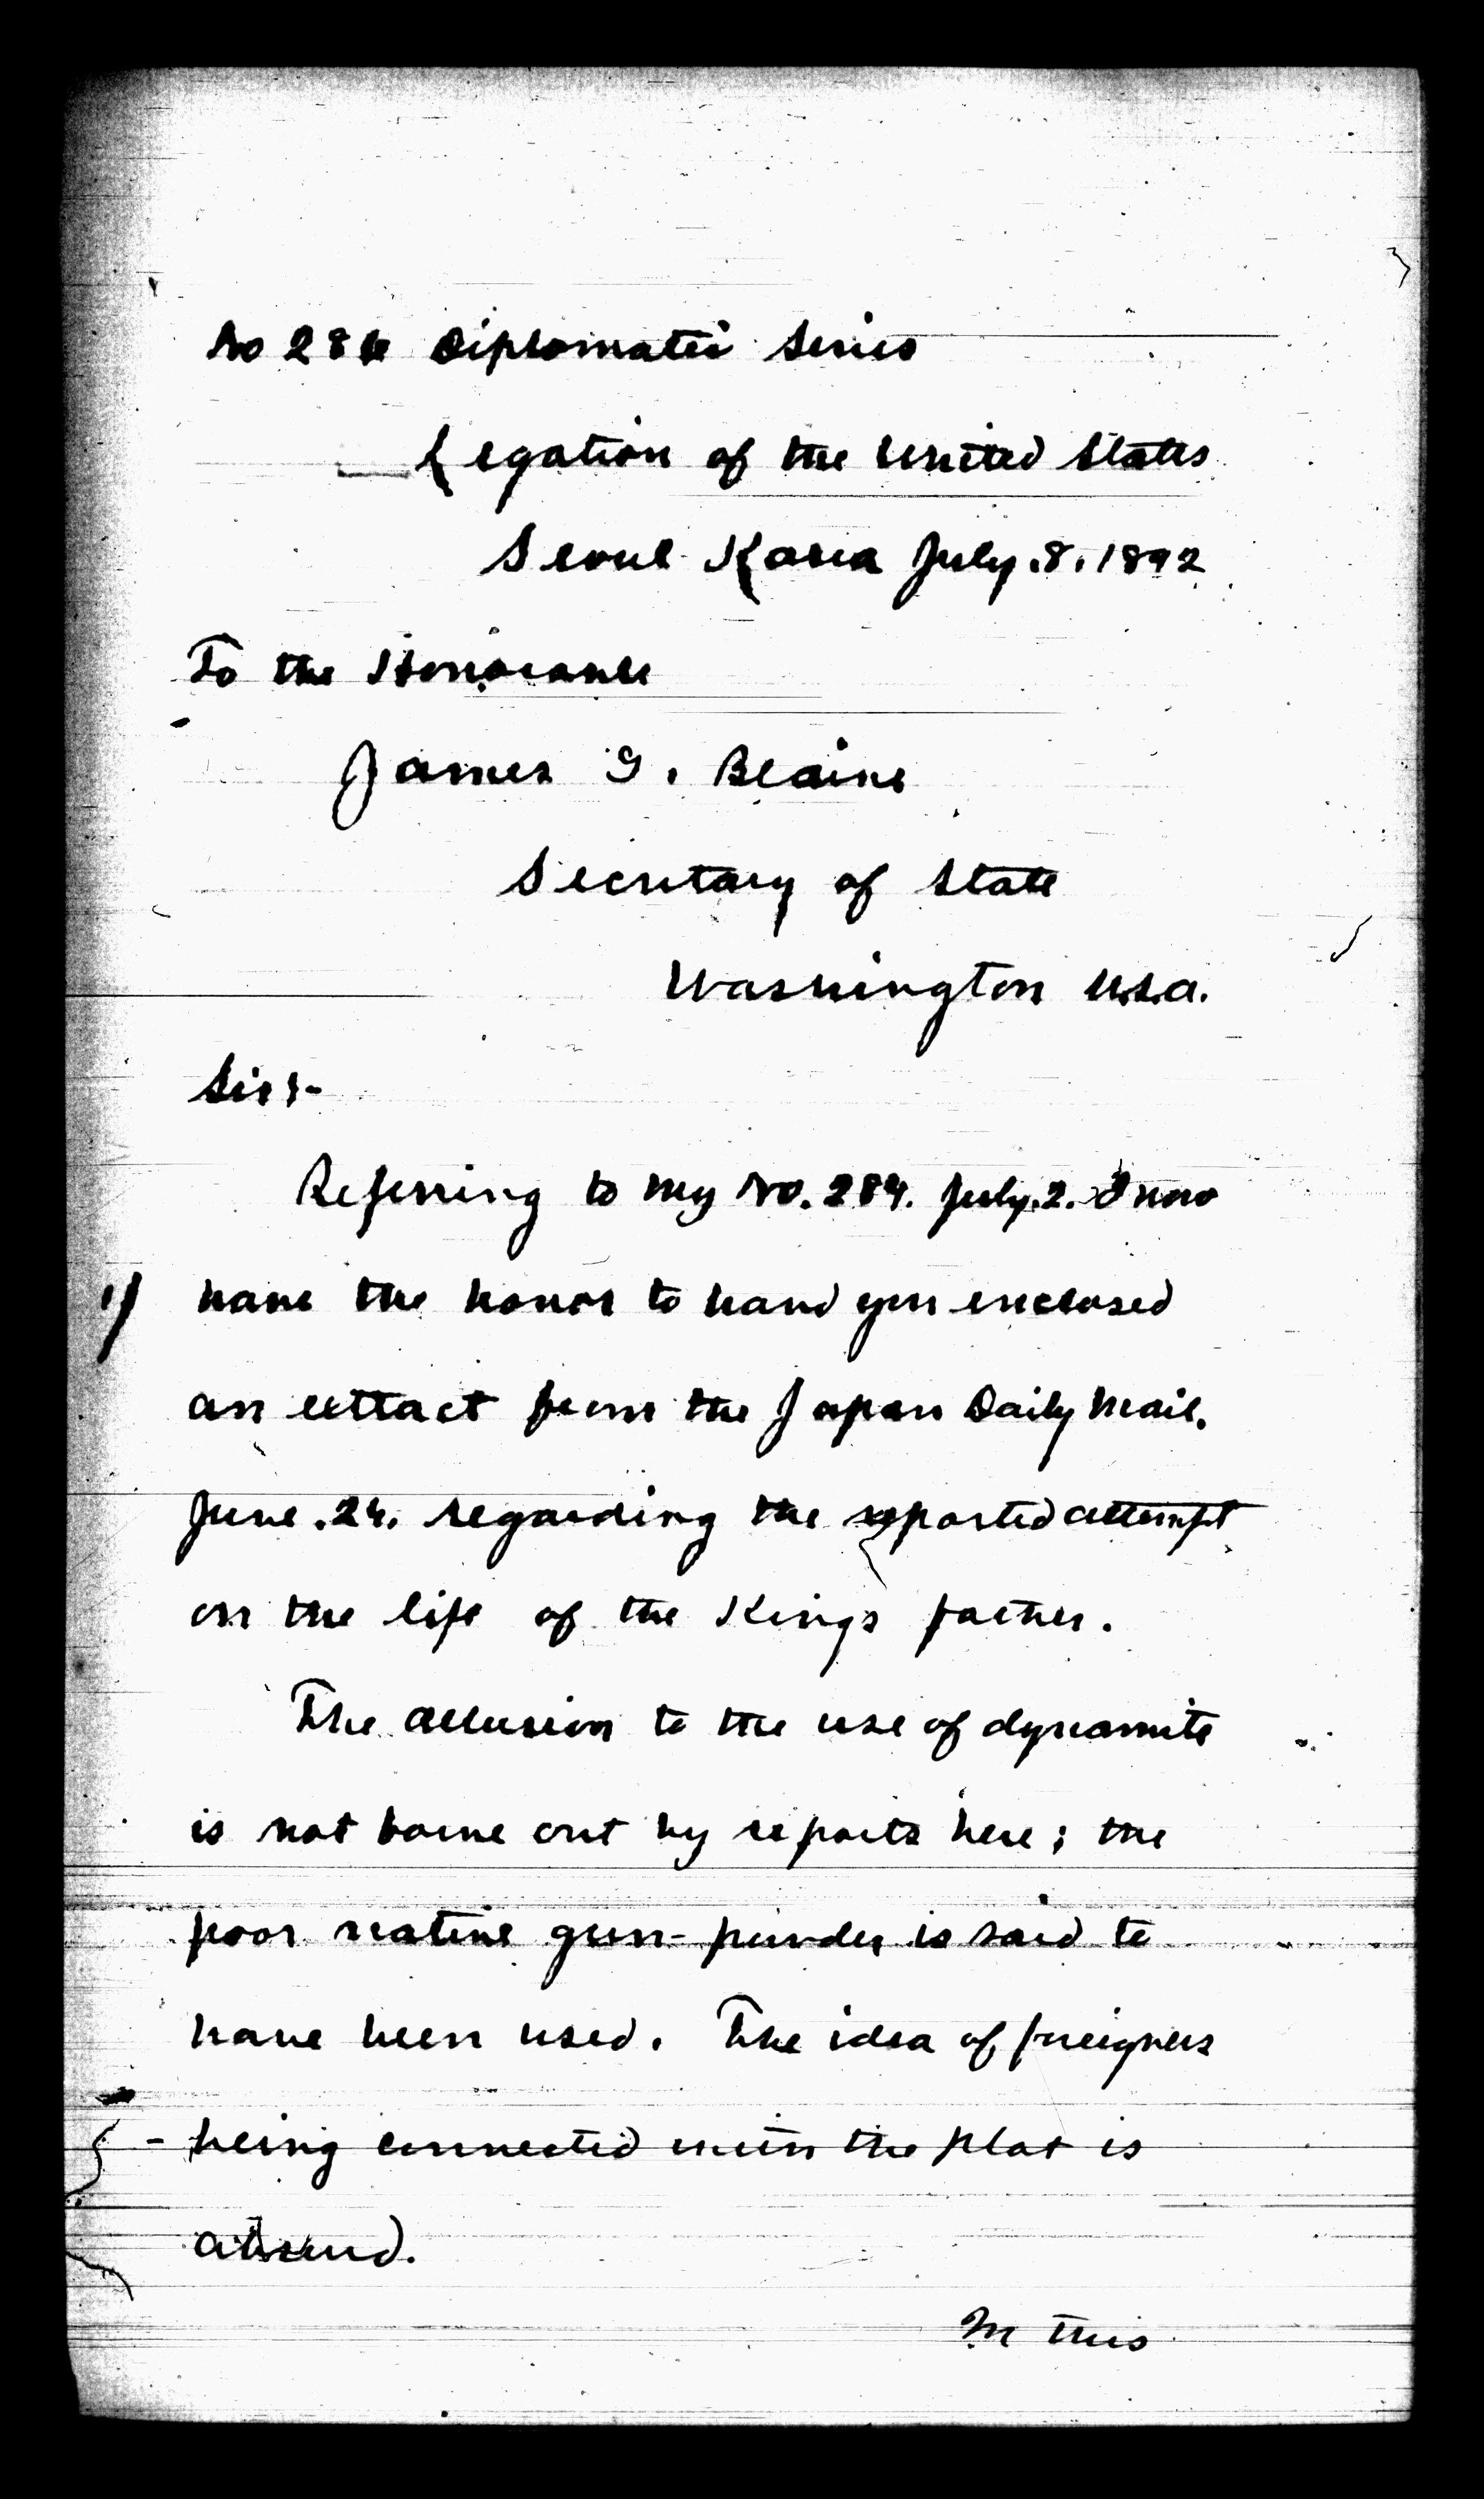 No 286 Diplomatic Series
Legation of the United States
Seoul Korea July.8.1892
To the Honorable
James G. Blaine
Secretary of State
Washington U.S.A.
Sir:-
Referring to my No. 284. July.2. I now
1/ have the honor to hand you enclosed
an extract from the Japan Daily Mail.
June.24. regarding the reported attempt
on the life of the Kings father.
The allusion to the use of dynamite
is not borne out by reports here; the
poor native gun-powder is said to
have been used. The idea of foreigners
being connected with the plot is
absurd.
In this